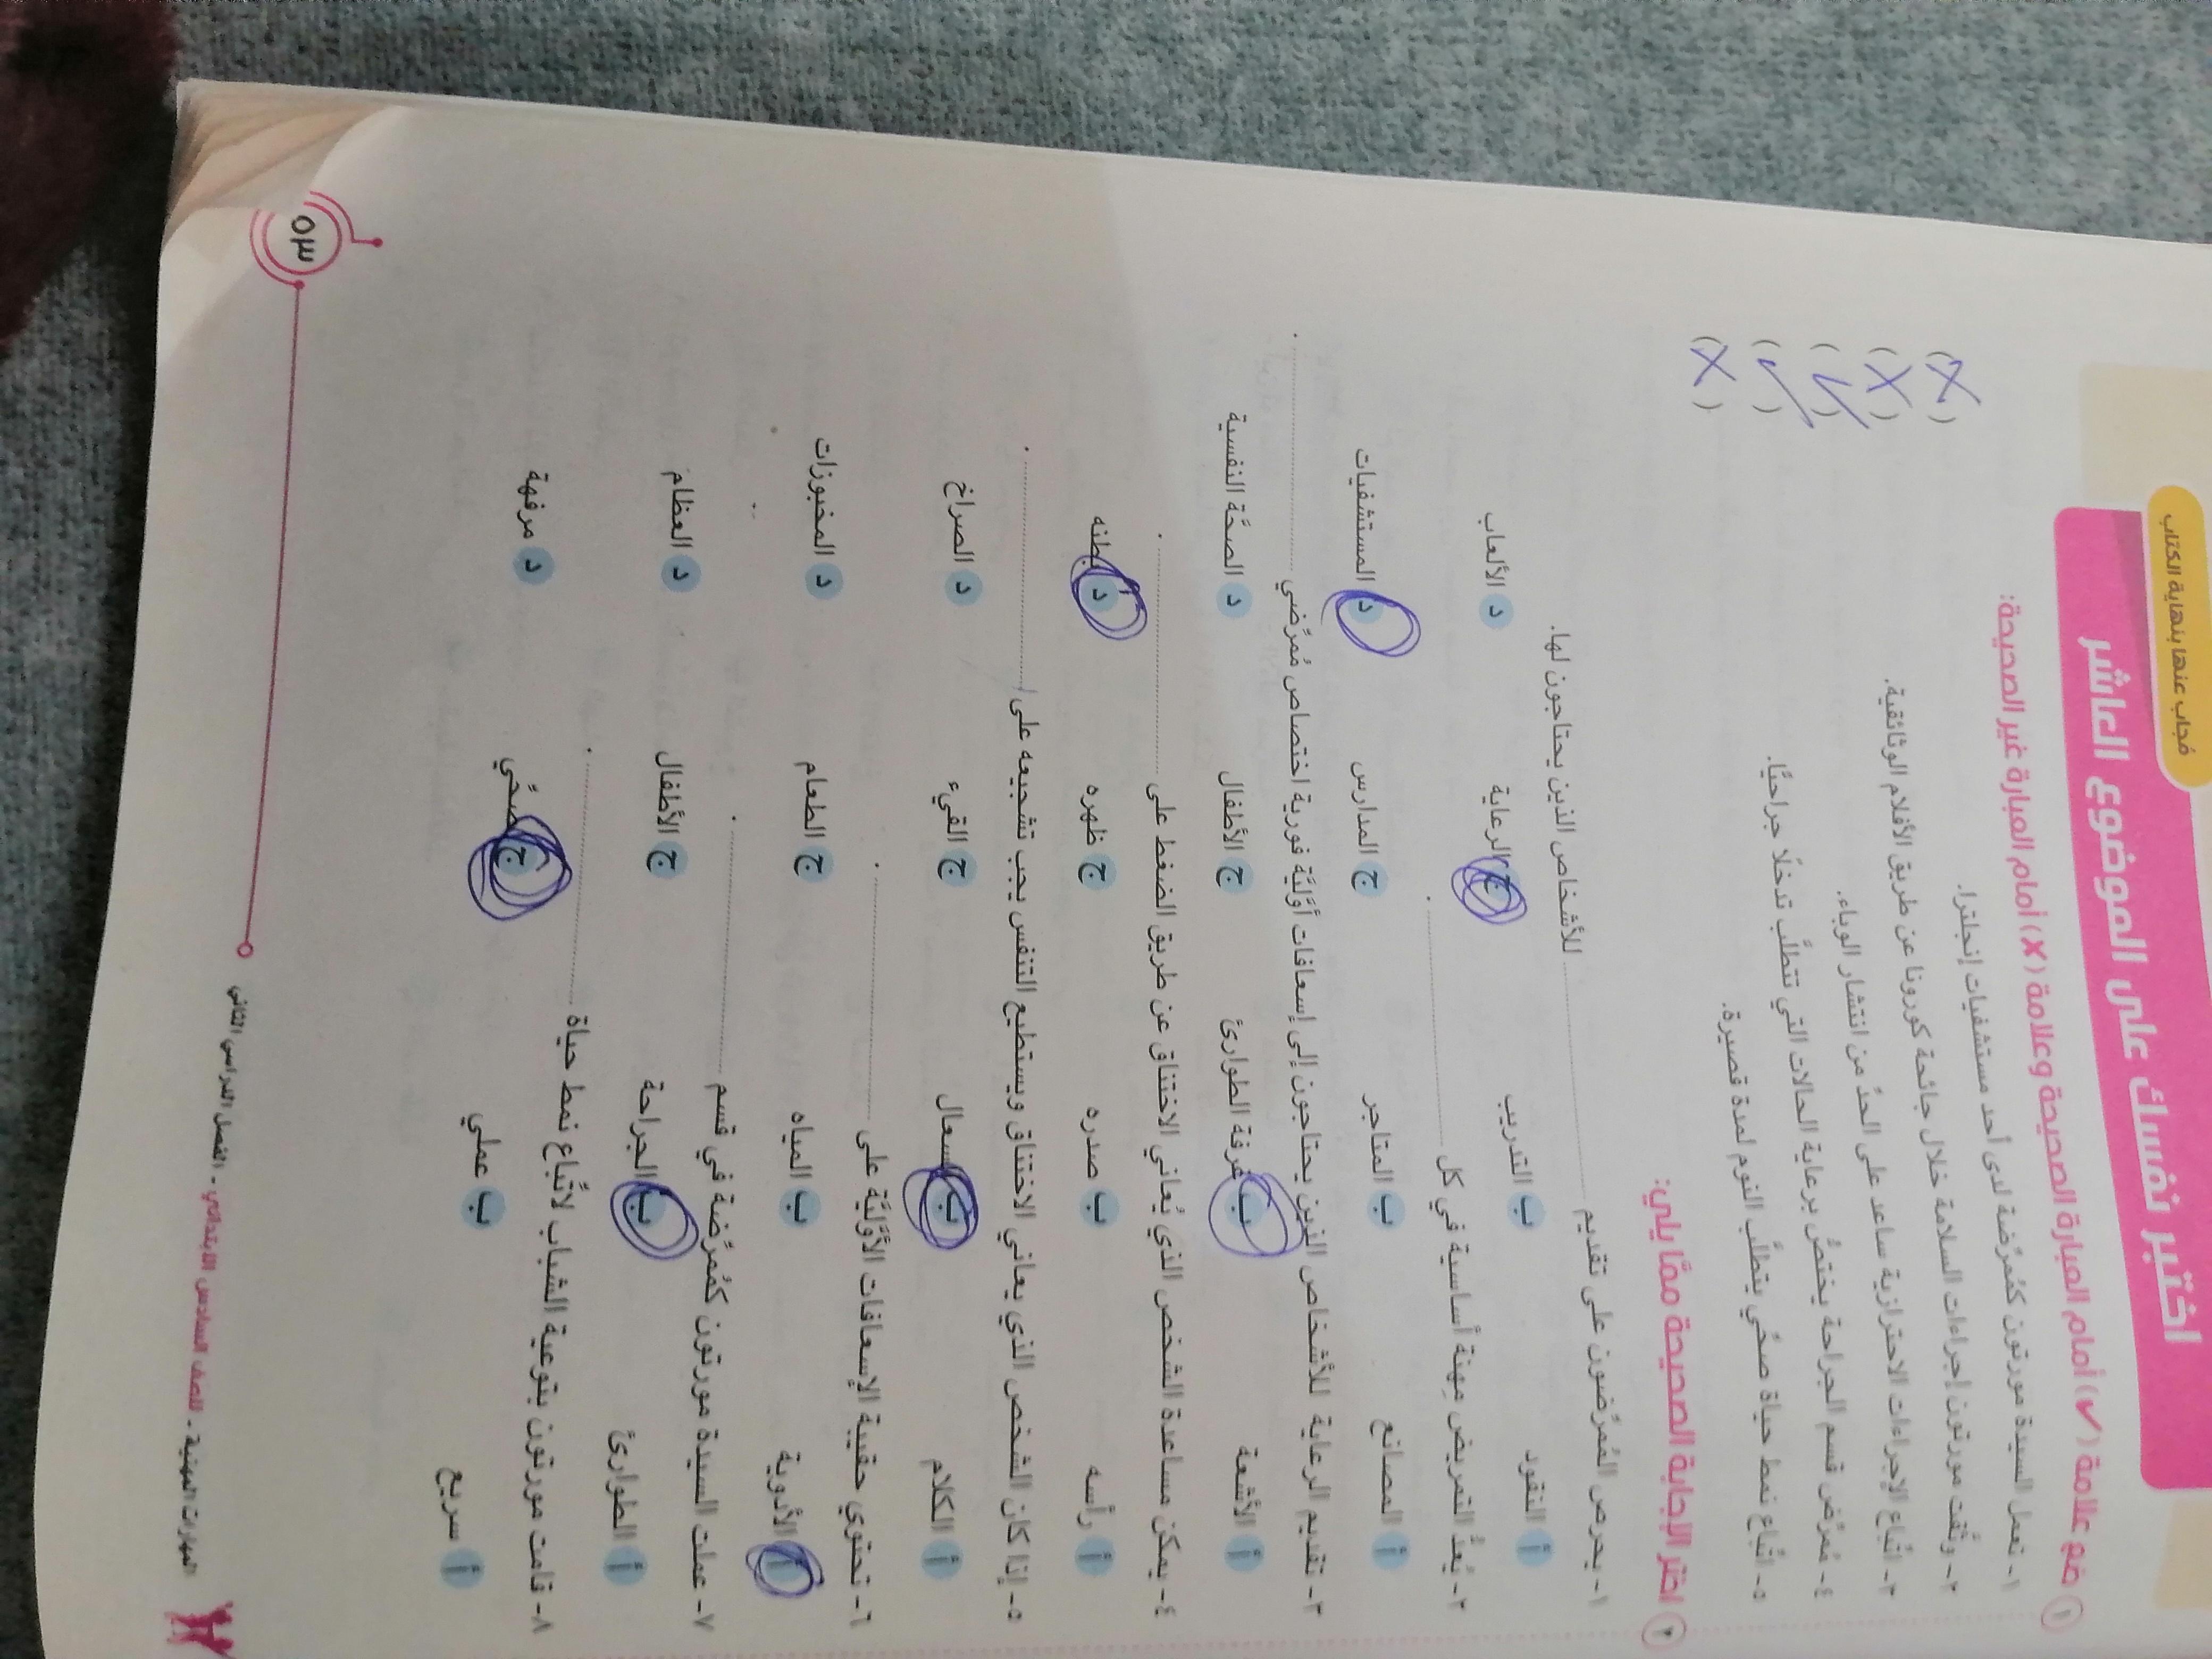 مُجاب عنها بنهاية الكتاب
اختبر نفسك على الموضوع العاشر
١ ضع علامة (✓) أمام العبارة الصحيحة وعلامة (✗) أمام العبارة غير الصحيحة:
١- تعمل السيدة مورتون كمُمرِّضة لدى أحد مستشفيات إنجلترا. (X)
٢- وثَّقت مورتون إجراءات السلامة خلال جائحة كورونا عن طريق الأفلام الوثائقية. (X)
٣- اتِّباع الإجراءات الاحترازية ساعد على الحدِّ من انتشار الوباء. (✓)
٤- مُمرِّض قسم الجراحة يختصُّ برعاية الحالات التي تتطلَّب تدخلًا جراحيًا. (✓)
٥- اتِّباع نمط حياة صحِّي يتطلَّب النوم لمدة قصيرة. (X)
٢ اختر الإجابة الصحيحة ممَّا يلي:
١- يحرص المُمرِّضون على تقديم ........ للأشخاص الذين يحتاجون لها.
أ النقود ب التدريب ج الرعاية د الألعاب
٢- يُعدُّ التمريض مِهنة أساسية في كل ........ .
أ المصانع ب المتاجر ج المدارس د المستشفيات
٣- تقديم الرعاية للأشخاص الذين يحتاجون إلى إسعافات أوَّليَّة فورية اختصاص مُمرِّضي ........ .
أ الأشعة ب غرفة الطوارئ ج الأطفال د الصحَّة النفسية
٤- يمكن مساعدة الشخص الذي يُعاني الاختناق عن طريق الضغط على ........ .
أ رأسه ب صدره ج ظهره د بطنه
٥- إذا كان الشخص الذي يعاني الاختناق ويستطيع التنفس يجب تشجيعه على ........ .
أ الكلام ب السعال ج القيء د الصراخ
٦- تحتوي حقيبة الإسعافات الأوَّليَّة على ........ .
أ الأدوية ب المياه ج الطعام د المخبوزات
٧- عملت السيدة مورتون كمُمرِّضة في قسم ........ .
أ الطوارئ ب الجراحة ج الأطفال د العظام
٨- قامت مورتون بتوعية الشباب لاتِّباع نمط حياة ........ .
أ سريع ب عملي ج صحِّي د مرفهة
المهارات المهنية - للصف السادس الابتدائي - الفصل الدراسي الثاني
٥٣